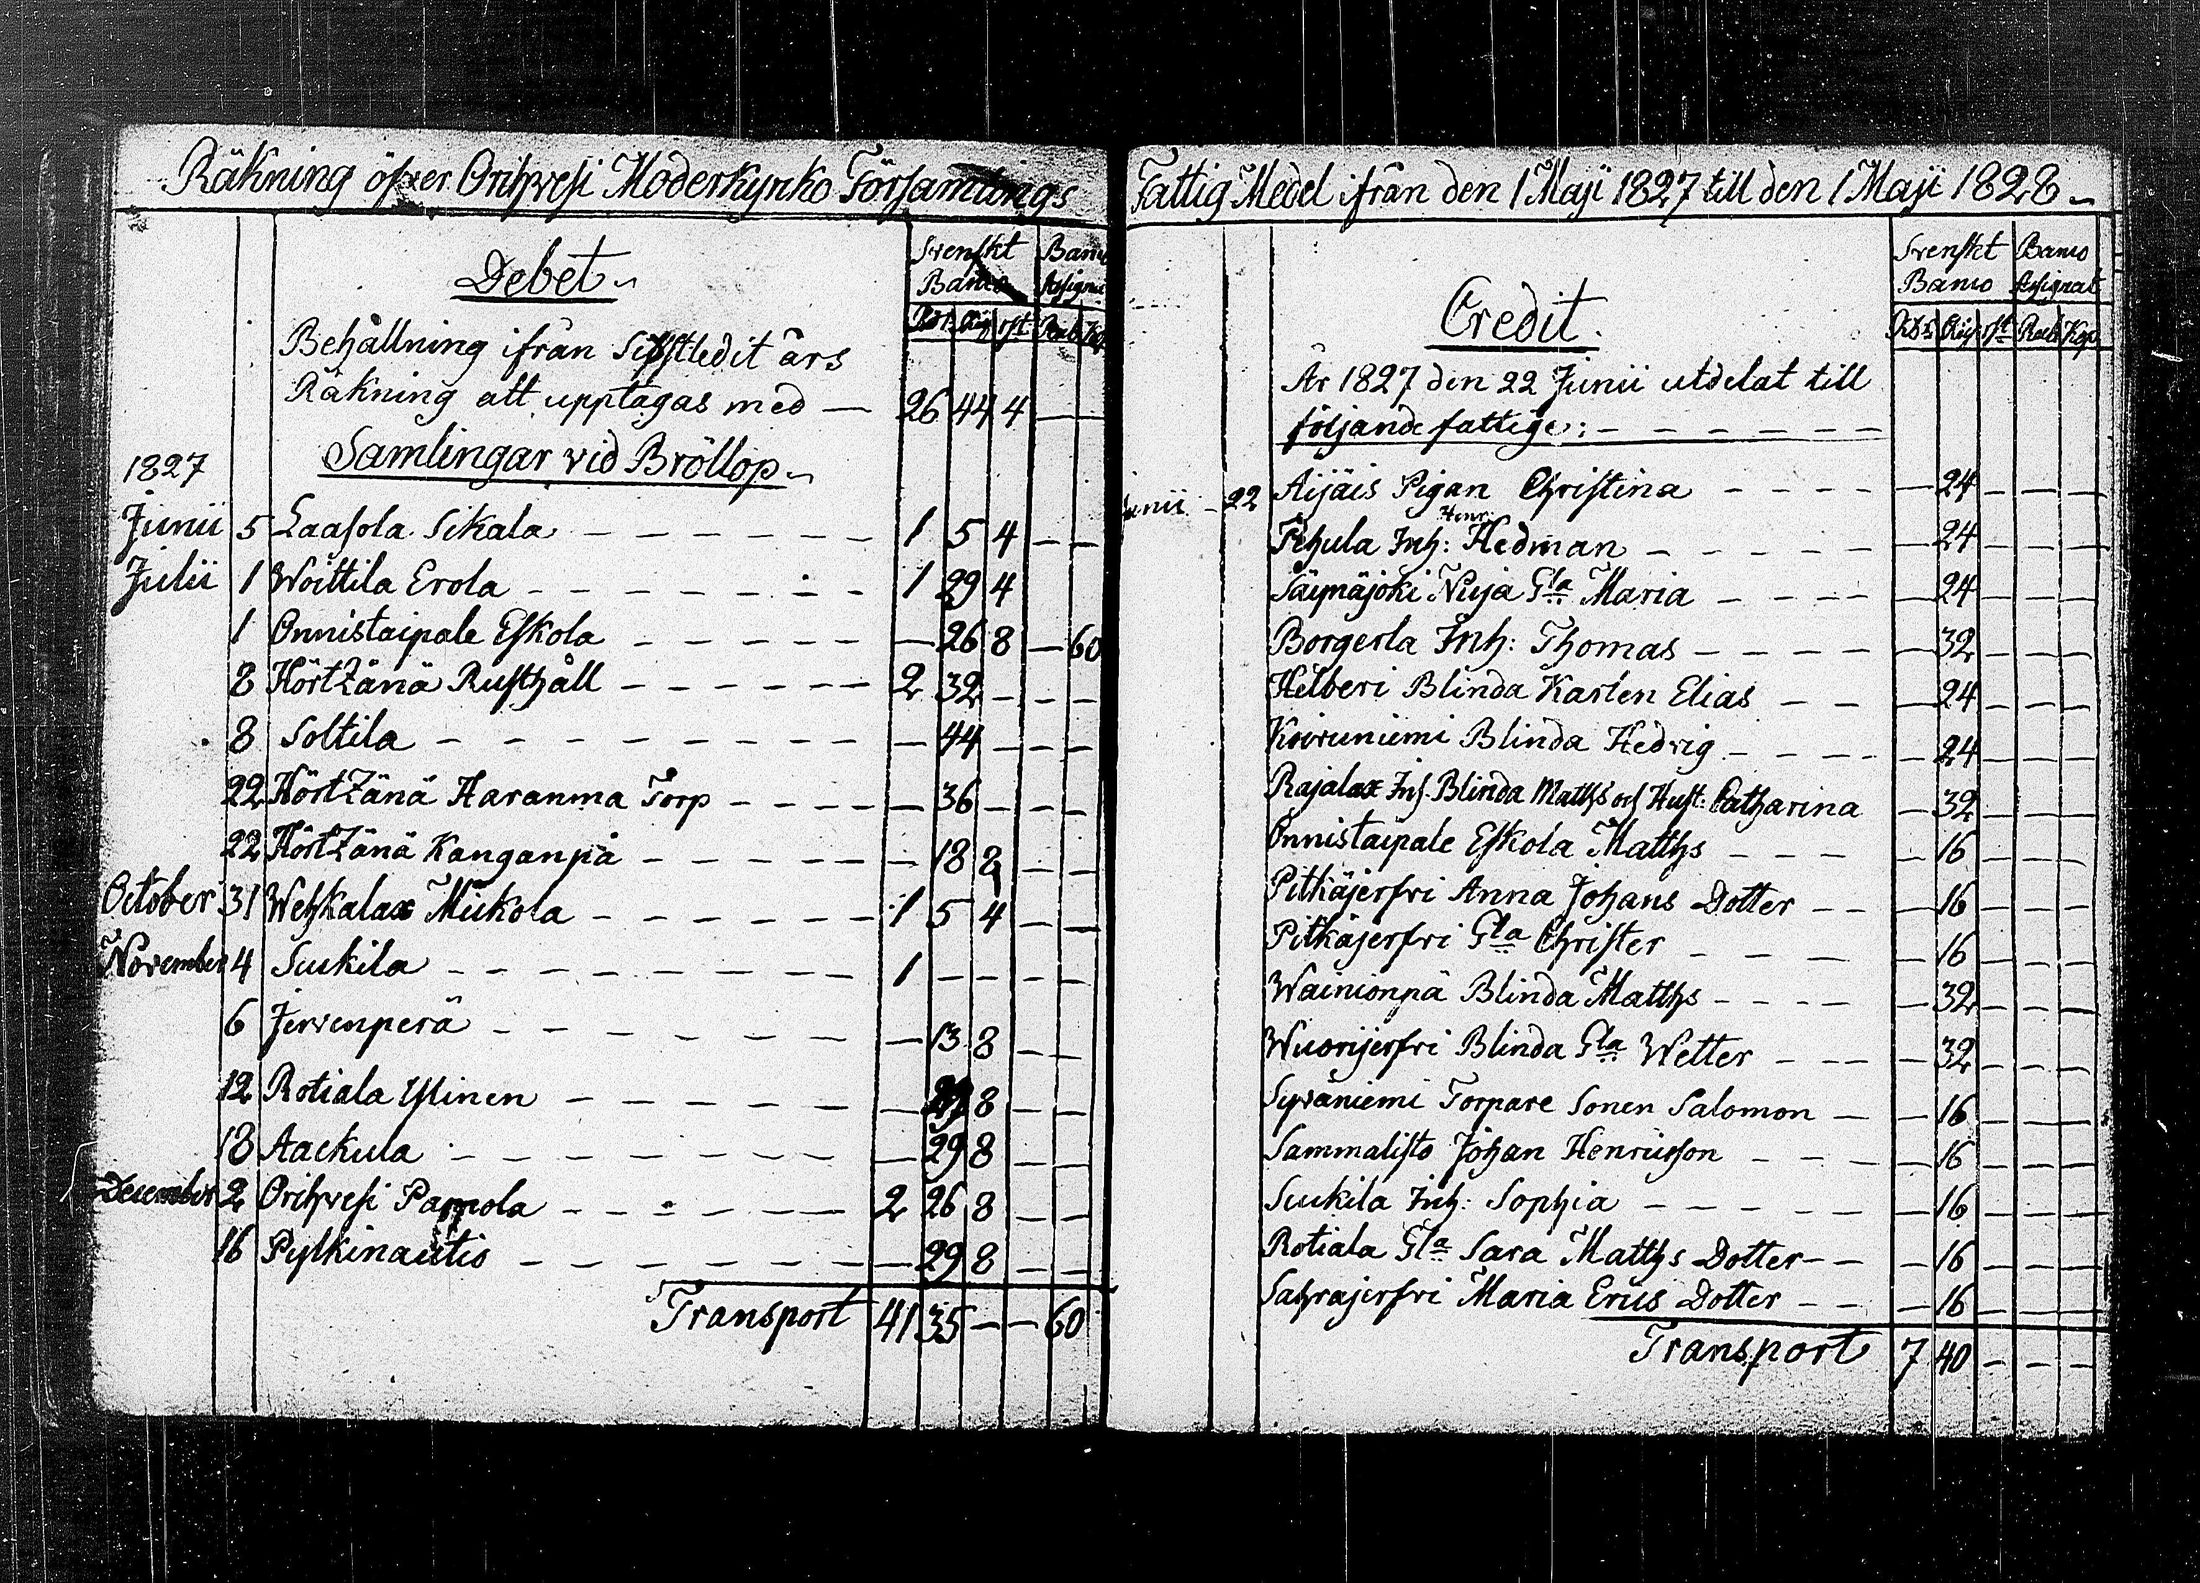 Räkning öfver Orihvesi Moderkyrko Församlings
Debet
Svenskt Banco
Banco Assignat
Rdr Rug rst Rub Kop
Behållning ifrån Sistledit års
Räkning att upptagas med — 26 44 4 — —
Samlingar vid Bröllop
1827
Junii 5 Laasola Sikala 1 5 4 — —
Julii 1 Woittila Erola 1 29 4
1 Onnistaipale Eskola — 26 8 — 60
8 Hörtzänä Rusthåll 2 32 — — —
8 Soltila — 44 — — —
22 Hörtzänä Haranma Torp — 36 — — —
22 Hörtzänä Kanganpä — 18 8 — —
October 31 Wehkalax Mickola 1 5 4 — —
November 4 Suckila 1 — — — —
6 Jervenperä — 13 8 — —
12 Rotiala Yllinen — 8 — —
18 Aackula — 29 8 — —
December 2 Orihvesi Pappola 2 26 8 — —
16 Pylkinautio — 29 8 — —
Transport 41 35 — — 60
Fattig Medel ifrån den 1 Maji 1827 till den 1 Maji 1828
Credit.
Svenskt Banco
Banco Assignat
Rdr Rug rst Rub Kop
År 1827 den 22 Junii utdelat till
följande fattige:
Junii 22 Aijäis Pigan Christina — 24 — — —
Pehula Inh: Henr: Hedman — 24 — — —
Säynäjoki Nuja Gla Maria — 24 — — —
Borgerla Inh: Thomas — 32 — — —
Hilberi Blinda Karlen Elias — 24 — — —
Koivuniemi Blinda Hedvig — 24 — — —
Rajalax Inh. Blinda Matths och Hust: Catharina — 32 — — —
Onnistaipale Eskola Matths — 16 — — —
Pitkäjerfvi Anna Johans Dotter — 16 — — —
Pitkäjerfvi Gla Christer — 16 — — —
Wäinionpä Blinda Matths — 32 — — —
Wuorijerfvi Blinda Gla Wetter — 32 — — —
Syväniemi Torpare Sonen Salomon — 16 — — —
Sammalisto Johan Henricsson — 16 — — —
Suckila Inh: Sophia — 16 — — —
Rotiala Gla Sara Matths Dotter — 16 — — —
Sahrajerfvi Maria Erics Dotter — 16 — — —
Transport 7 40 — — —